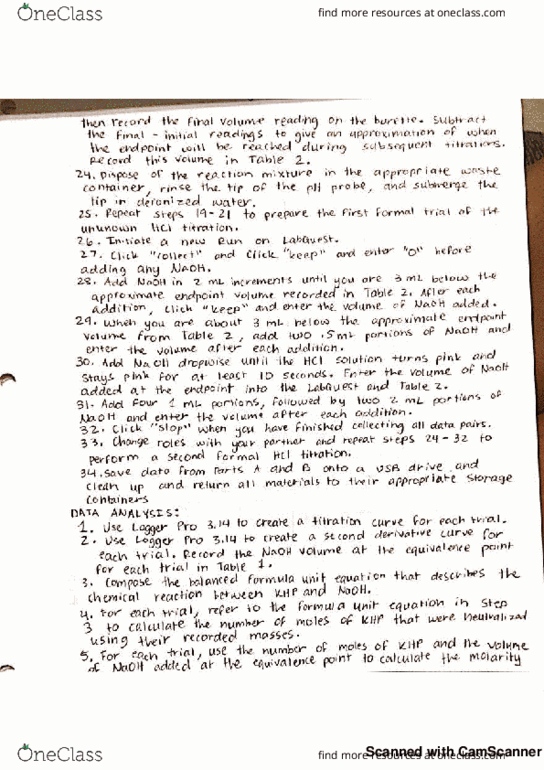 OneClass
find more resources at oneclass.com
then record the final volume reading on the burette. Subtract
the final - initial readings to give an approximation of when
the endpoint will be reached during subsequent titrations.
Record this volume in Table 2.
24. Dispose of the reaction mixture in the appropriate waste
container, rinse the tip of the pH probe, and submerge the
tip in deionized water.
25. Repeat steps 19-21 to prepare the first formal trial of the
unknown HCl titration.
26. Initiate a new Run on LabQuest.
27. Click "collect" and Click "keep" and enter "0" before
adding any NaOH.
28. Add NaOH in 2 mL increments until you are 3 mL below the
approximate endpoint volume recorded in Table 2. After each
addition, click "keep" and enter the volume of NaOH added.
29. When you are about 3 mL below the approximate endpoint
volume from Table 2, add two .5mL portions of NaOH and
enter the volume after each addition.
30. Add NaOH dropwise until the HCl solution turns pink and
stays pink for at least 10 seconds. Enter the volume of NaOH
added at the endpoint into the LabQuest and Table 2.
31. Add four 1 mL portions, followed by two 2 mL portions of
NaOH and enter the volume after each addition.
32. Click "Stop" when you have finished collecting all data pairs.
33. Change roles with your partner and repeat steps 24-32 to
perform a second formal HCl titration.
34. Save data from Parts A and B onto a USB drive and
clean up and return all materials to their appropriate storage
containers
DATA ANALYSIS:
1. Use Logger Pro 3.14 to create a titration curve for each trial.
2. Use Logger Pro 3.14 to create a second derivative curve for
each trial. Record the NaOH volume at the equivalence point
for each trial in Table 1.
3. Compose the balanced formula unit equation that describes the
chemical reaction between KHP and NaOH.
4. For each trial, refer to the formula unit equation in Step
3 to calculate the number of moles of KHP that were neutralized
using their recorded masses.
5. For each trial, use the number of moles of KHP and the volume
of NaOH added at the equivalence point to calculate the molarity
Scanned with CamScanner
OneClass
find more resources at oneclass.com